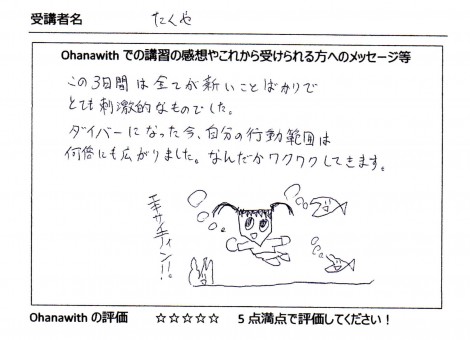 受講者名 たくや
Ohanawith での講習の感想やこれから受けられる方へのメッセージ等
この3日間は全てが新しいことばかりで
とても刺激的なものでした。
ダイバーになった今、自分の行動範囲は
何倍にも広がりました。なんだかワクワクしてきます。
エキサイティン!!
Ohanawith の評価 ☆☆☆☆☆ 5 点満点で評価してください!